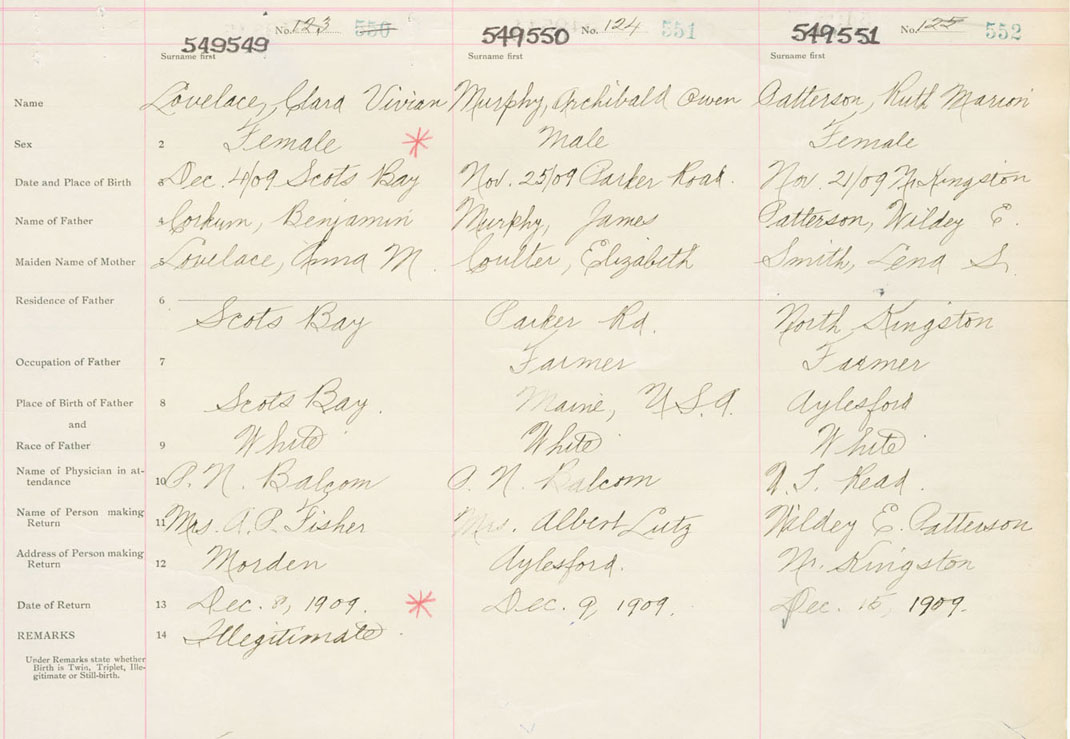 No. 123 550 No. 124 551 No. 125 552
549549 549550 549551
Surname first Surname first Surname first
Name Lovelace, Clara Vivian Murphy, Archibald Owen Patterson, Ruth Marion
Sex 2 Female Male Female
Date and Place of Birth 3 Dec. 4/09 Scots Bay Nov. 25/09 Parker Road. Nov. 21/09 N. Kingston
Name of Father 4 Corkum, Benjamin Murphy, James Patterson, Wildey E.
Maiden Name of Mother 5 Lovelace, Anna M. Coulter, Elizabeth Smith, Lena S.
Residence of Father 6 Scots Bay Parker Rd. North Kingston
Occupation of Father 7 Farmer Farmer
Place of Birth of Father 8 Scots Bay. Maine, U.S.A. Aylesford
and
Race of Father 9 White White White
Name of Physician in at-
tendance 10 P. N. Balcom P. N. Balcom Read.
Name of Person making
Return 11 Mrs. A. P. Fisher Mrs. Albert Lutz Wildey E. Patterson
Address of Person making
Return 12 Morden Aylesford. N. Kingston
Date of Return 13 Dec. 8, 1909. Dec. 9, 1909. Dec. 15, 1909.
REMARKS 14 Illegitimate.
Under Remarks state whether
Birth is Twin, Triplet, Ille-
gitimate or Still-birth.